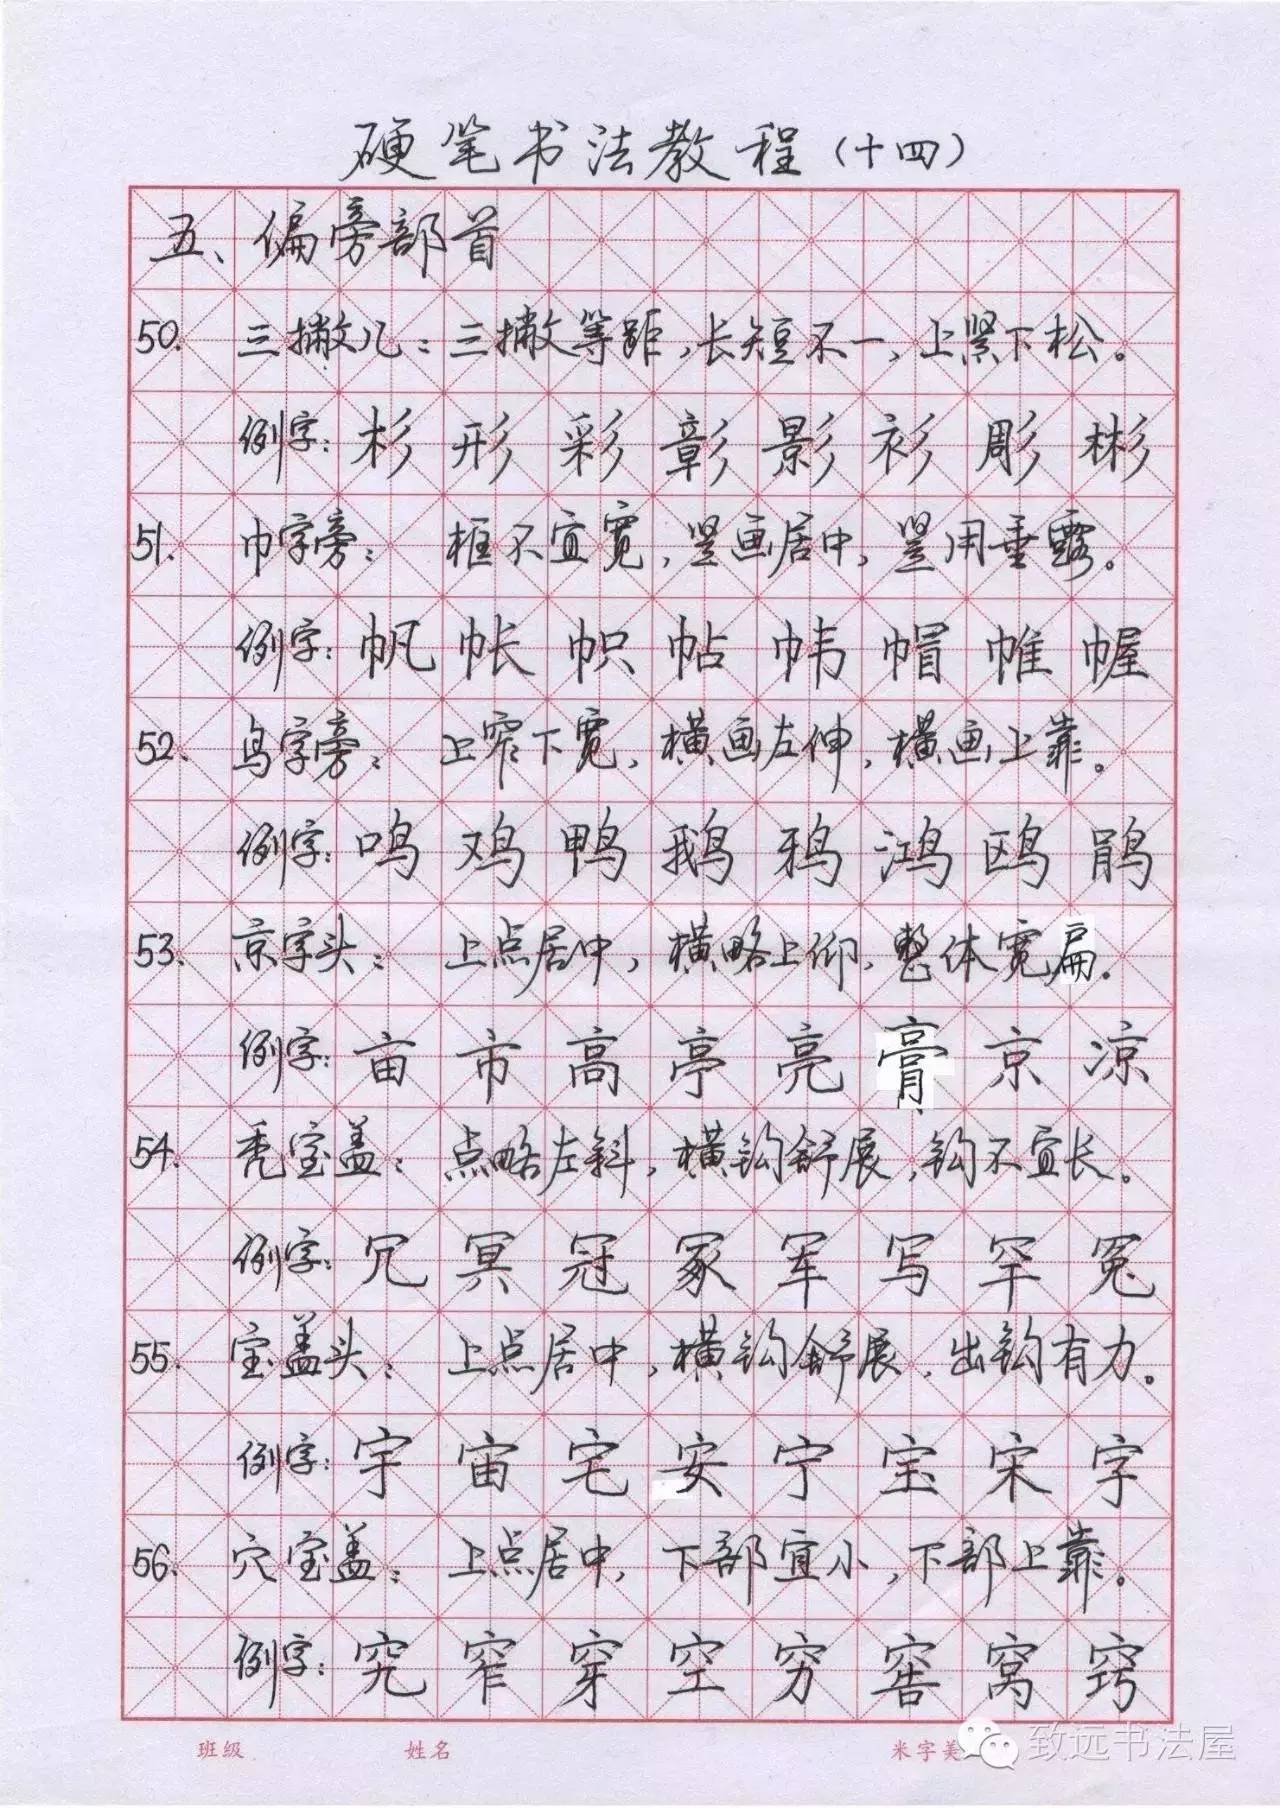 硬笔书法教程(十四)
五、偏旁部首
50. 三撇儿:三撇等距,长短不一,上紧下松。
例字:杉形彩彰影衫彫彬
51. 巾字旁: 框不宜宽,竖画居中,竖用垂露。
例字:帆帐帜帖帏帽帷幄
52. 鸟字旁: 上窄下宽,横画左伸,横画上靠。
例字:鸣鸡鸭鹅鸦鸿鸥鹃
53. 京字头: 上点居中,横略上仰,整体宽扁.
例字:亩市高亭亮膏京凉
54. 秃宝盖: 点略左斜,横钩舒展,钩不宜长。
例字:冗冥冠冢军写罕冤
55. 宝盖头: 上点居中,横钩舒展,出钩有力。
例字:宇宙宅安宁宝宋字
56. 穴宝盖: 上点居中,下部宜小,下部上靠。
例字:究窄穿空穷窖窝窍
班级 姓名 米字美
致远书法屋